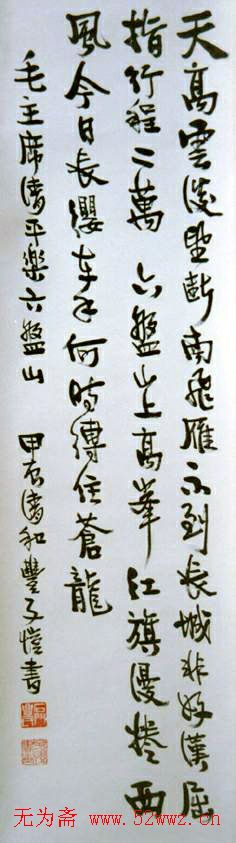 天高雲淡望斷南飛雁不到長城非好漢屈
指行程二萬六盤山上高峯紅旗漫捲西
風今日長纓在手何時縛住蒼龍
毛主席清平樂六盤山 甲辰清和豐子愷書
无为斋 www.52wwz.cn